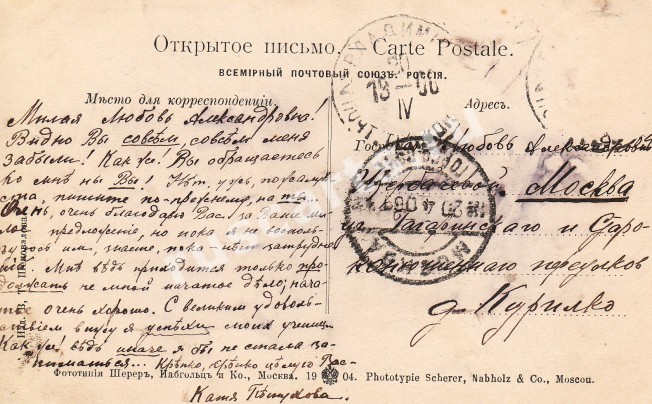 Открытое письмо. Carte Postale.
ВСЕМІРНЫЙ ПОЧТОВЫЙ СОЮЗЪ. РОССІЯ.
Мѣсто для корреспонденціи.
Адресъ.
Милая Любовь Александровна!
Видно Вы совсѣм, совсѣм меня
забыли! Как же! Вы обращаетесь
ко мнѣ на Вы! Нѣт, ужъ, пожалуй-
ста, пишите по-прежнему, на ты.
Очень, очень благодарю Вас за Ваше ми-
лое предложение, но пока я не восполь-
зуюсь им, знаете, пока
Мнѣ вѣдь приходится только про-
должать не мной начатое дѣло;
очень хорошо. С великим удоволь-
ствіем я успѣхи моих учениц.
Как же! вѣдь иначе я бы не стала за-
ниматься... Крѣпко, крѣпко цѣлую Вас
Катя Пѣтухова.
Любовь Александровнѣ
Щербачевой Москва
Гагаринскаго и Старо-
конюшеннаго переулков
д. Курилко
20
13 - 06
IV
МОСКВА
20 4 06
Фототипія Шереръ, Набгольцъ и Ко., Москва. 19 04. Phototypie Scherer, Nabholz & Co., Moscou.